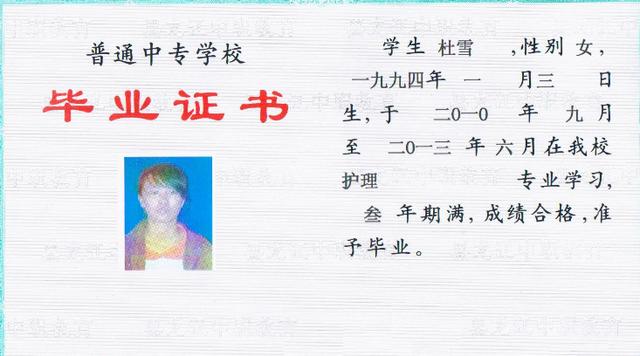 普通中专学校
毕业证书
学生 杜雪 ,性别 女,
一九九四年 一 月三 日
生,于 二〇一〇 年 九 月
至 二〇一三 年 六 月在我校
护理 专业学习,
叁 年期满,成绩合格,准
予毕业。